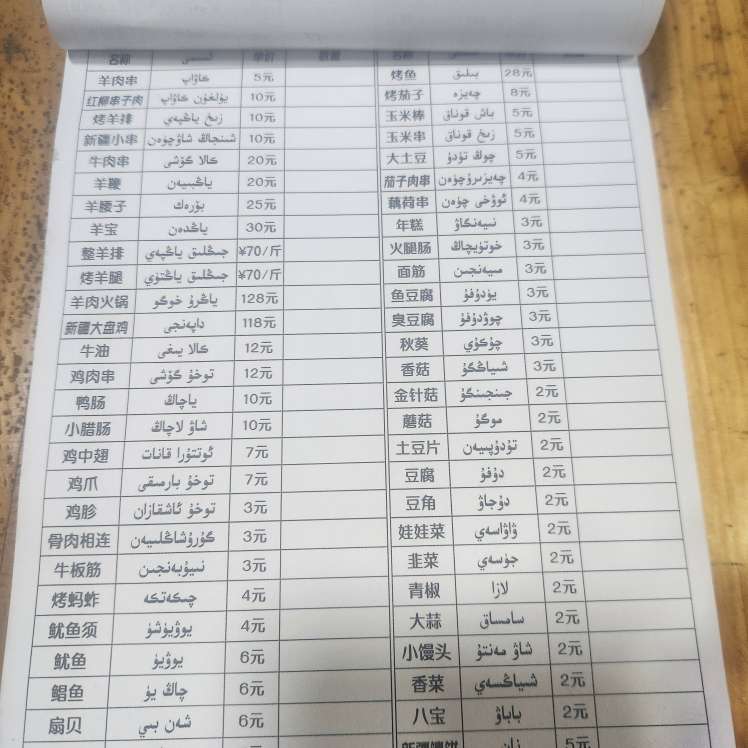 名称 単价 数量
羊肉串 كاۋاپ 5元
红柳串子肉 يۇلغۇن كاۋاپ 10元
烤羊排 زىخ ياڭپەي 10元
新疆小串 شىنجاڭ شاۋچۈەن 10元
牛肉串 كالا گۆشى 20元
羊鞭 ياڭبىيەن 20元
羊腰子 بۆرەك 25元
羊宝 ياڭدەن 30元
整羊排 جىڭلىق ياڭپەي ¥70/斤
烤羊腿 جىڭلىق ياڭتۈي ¥70/斤
羊肉火锅 ياڭرۇ خوگو 128元
新疆大盘鸡 داپەنجى 118元
牛油 كالا يىغى 12元
鸡肉串 توخۇ گۆشى 12元
鸭肠 ياچاڭ 10元
小腊肠 شاۋ لاچاڭ 10元
鸡中翅 ئوتتۇرا قانات 7元
鸡爪 توخۇ بارمىقى 7元
鸡胗 توخۇ ئاشقازان 3元
骨肉相连 گۇرۇشاڭلىيەن 3元
牛板筋 نىيۇبەنجىن 3元
烤蚂蚱 چېكەتكە 4元
鱿鱼须 يوۋيۈشۈ 4元
鱿鱼 يوۋيۈ 6元
鲳鱼 چاڭ يۈ 6元
扇贝 شەن بېي 6元
烤鱼 بېلىق 28元
烤茄子 چەيزە 8元
玉米棒 باش قوناق 5元
玉米串 زىخ قوناق 5元
大土豆 چوڭ تۇدۇ 5元
茄子肉串 چەيزىرۇچۈەن 4元
藕荷串 ئوۋخى چۈەن 4元
年糕 نىيەنگاۋ 3元
火腿肠 خوتۈيچاڭ 3元
面筋 مىيەنجىن 3元
鱼豆腐 يۈدۇفۇ 3元
臭豆腐 چوۋدۇفۇ 3元
秋葵 چۇكۈي 3元
香菇 شىياڭگۇ 3元
金针菇 جىنجىنگۇ 2元
蘑菇 موگۇ 2元
土豆片 تۇدۇپىيەن 2元
豆腐 دۇفۇ 2元
豆角 دۇجاۋ 2元
娃娃菜 ۋاۋاسەي 2元
韭菜 جۈسەي 2元
青椒 لازا 2元
大蒜 سامساق 2元
小馒头 شاۋ مەنتۇ 2元
香菜 شىياڭسەي 2元
八宝 باباۋ 2元
新疆馕饼 نان 5元